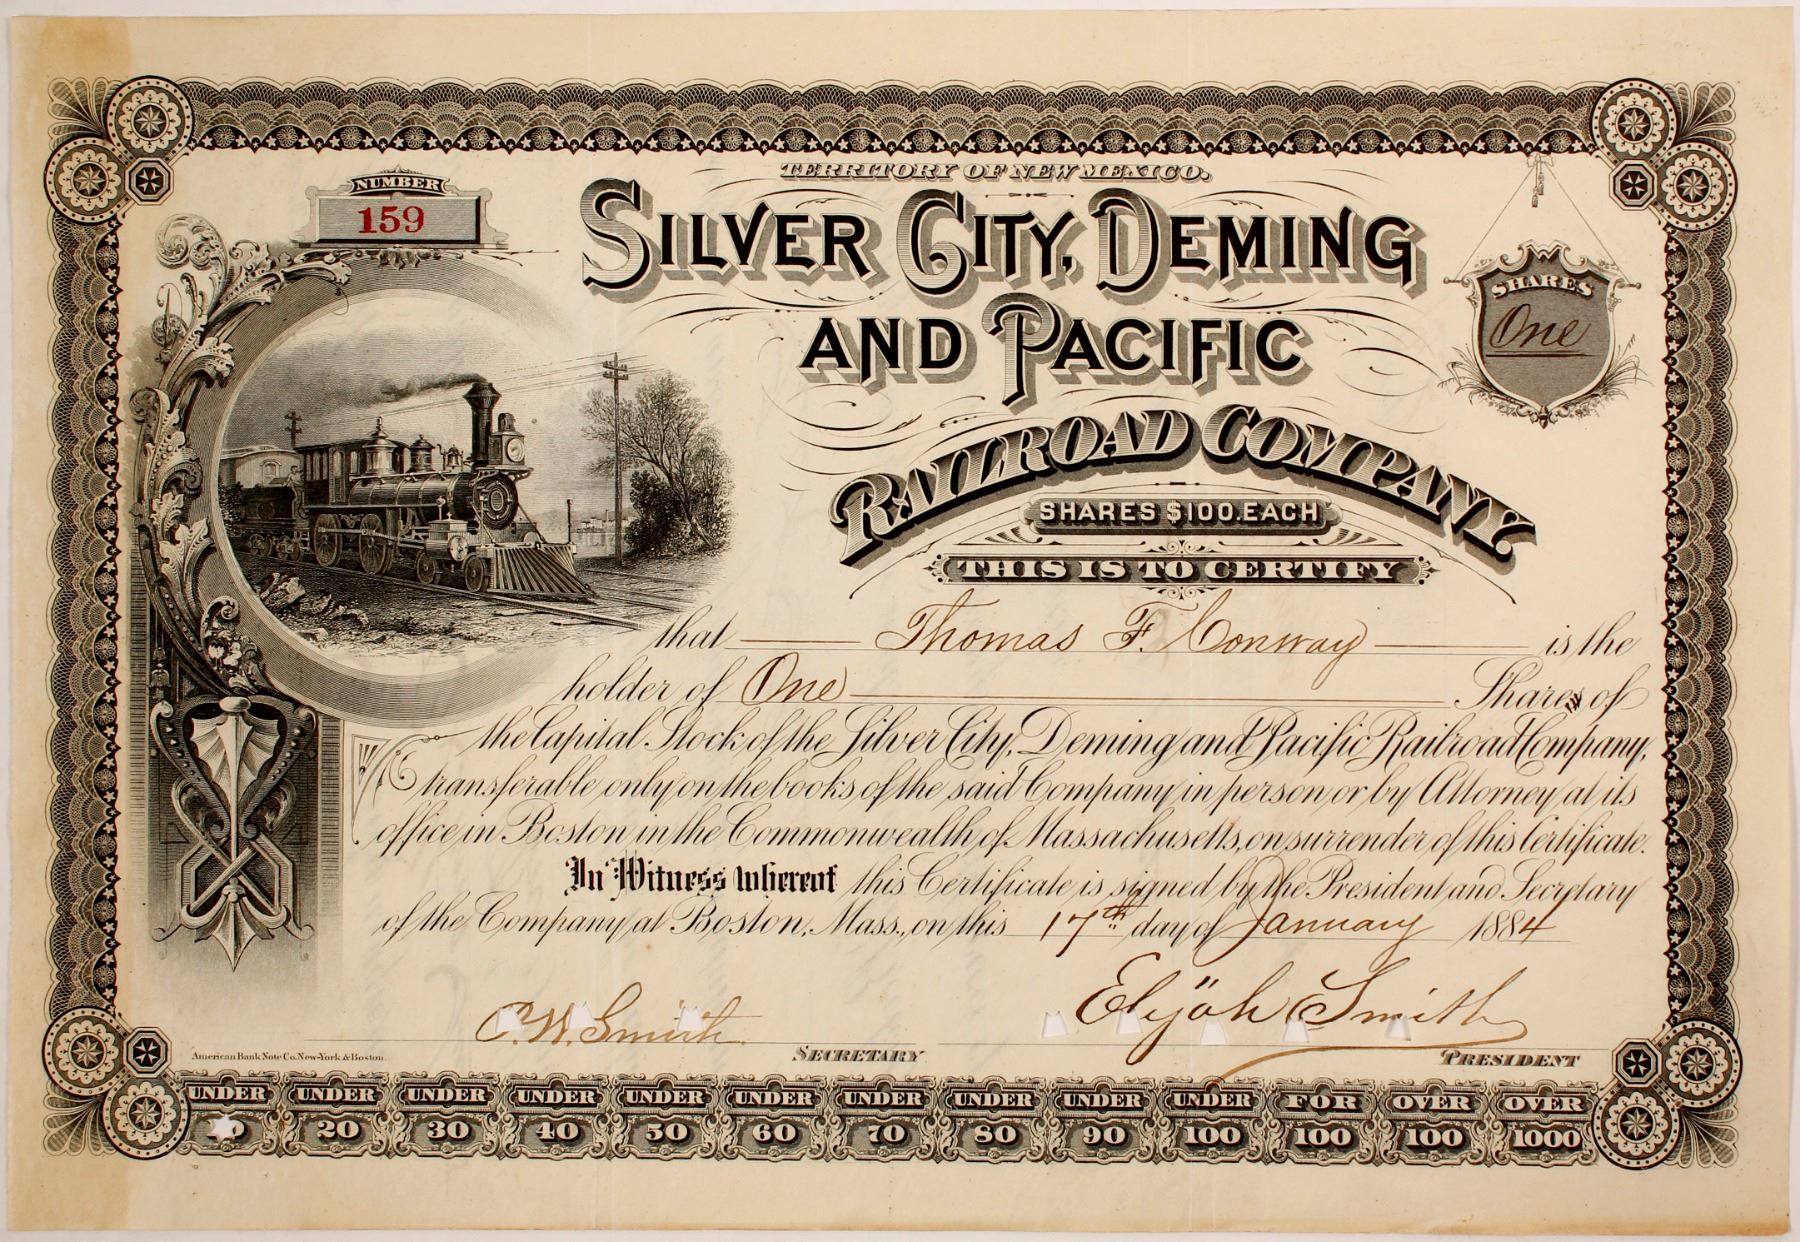 TERRITORY OF NEW MEXICO.
NUMBER
159
SILVER CITY, DEMING
AND PACIFIC
RAILROAD COMPANY
SHARES
One
SHARES $100. EACH
THIS IS TO CERTIFY
that Thomas F. Conway is the
holder of One Shares of
the Capital Stock of the Silver City, Deming and Pacific Railroad Company,
transferable only on the books of the said Company in person or by Attorney at its
office in Boston in the Commonwealth of Massachusetts, on surrender of this Certificate.
In Witness Whereof this Certificate is signed by the President and Secretary
of the Company at Boston, Mass., on this 17th day of January 1884
C. W. Smith Elijah Smith
American Bank Note Co. New-York & Boston. SECRETARY PRESIDENT
UNDER UNDER UNDER UNDER UNDER UNDER UNDER UNDER UNDER UNDER FOR OVER OVER
20 30 40 50 60 70 80 90 100 100 100 1000